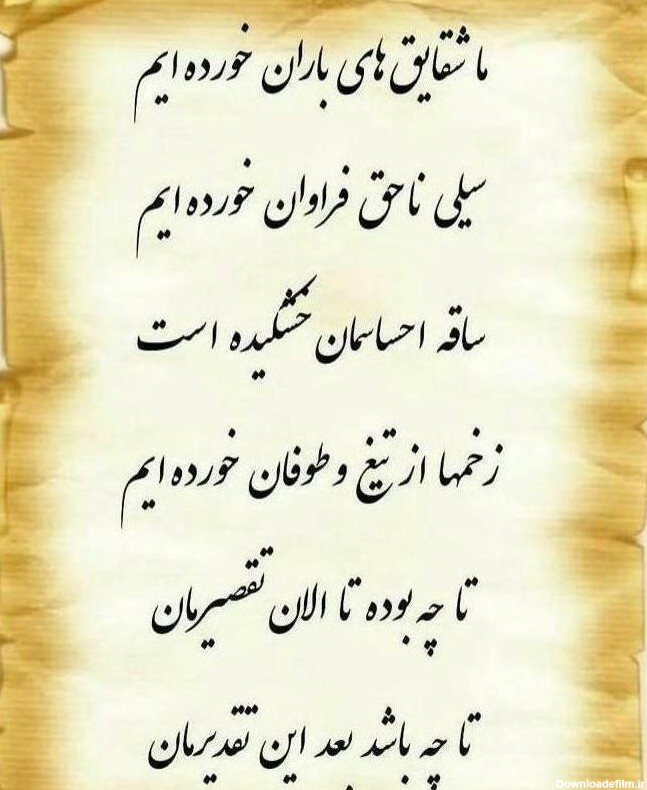 ما شقایق های باران خورده ایم
سیلی ناحق فراوان خورده ایم
ساقه احساسمان خشکیده است
زخمها از تیغ و طوفان خورده ایم
تا چه بوده تا الان تقصیرمان
تا چه باشد بعد این تقدیرمان
Downloadefilm.ir